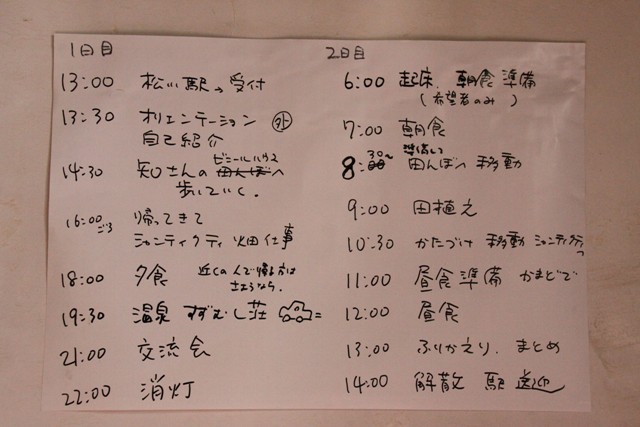 1日目
13:00 松川駅→受付
13:30 オリエンテーション 外
自己紹介
ビニールハウス
14:30 知さんの田んぼへ
歩いていく.
16:00ごろ 帰ってきて
シャンティクティ 畑仕事
18:00 夕食 近くの人で帰る方は
さようなら.
19:30 温泉 すずむし荘
21:00 交流会
22:00 消灯
2日目
6:00 起床. 朝食準備
(希望者のみ)
7:00 朝食
準備して
8:30~ 田んぼへ 移動
9:00 田植え
10:30 かたづけ 移動 シャンティクティへ
11:00 昼食準備 かまどで
12:00 昼食
13:00 ふりかえり. まとめ
14:00 解散 駅送迎